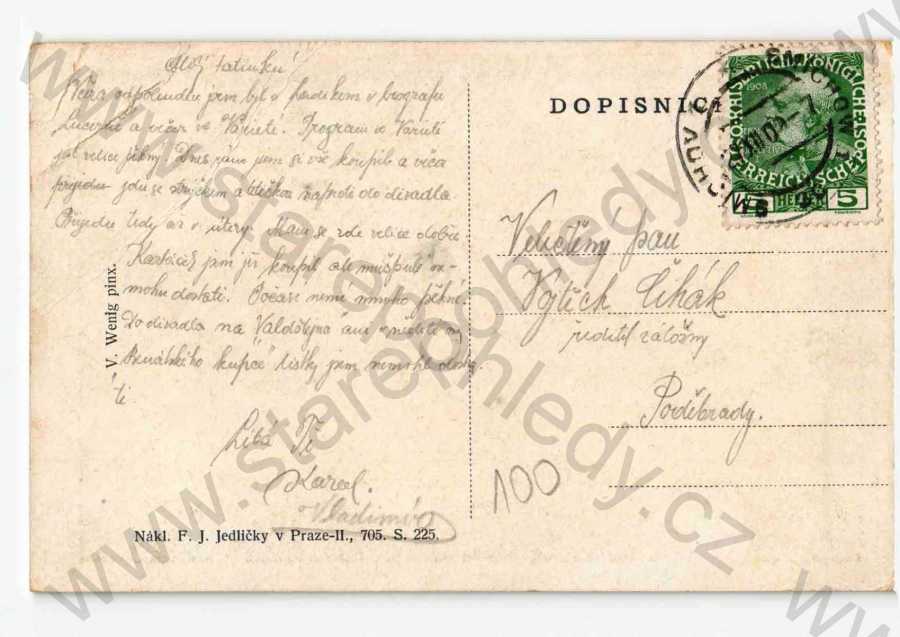 Můj tatínku!
Včera odpoledne jsem byl s Ludíkem v biografu
Lucerna a večer ve Varieté. Program ve Varieté
byl velice
Dnes jsem si vše koupil a
přijedu jdu se strýčkem a tetičkou do divadla
Přijedu tedy až v úterý. Mám se zde velice dobře.
jsem již koupil ale ne-
mohu dostati. Počasí není mnoho pěkné.
Do divadla na "Valdštýna" ani v neděli na
"Benátského kupce" lístky jsem nemohl dosta-
ti.
Líbá Tě
Karel.
Vladimír
V. Wenig pinx.
Nákl. F. J. Jedličky v Praze-II., 705. S. 225.
DOPISNICE
Veličtěný pan
Vojtěch Čihák
ředitel záložny
Poděbrady.
100
KAISERLICHKÖNIGLICHE
ÖSTERREICHISCHE POST
1908
5 HELLER 5
SMICHOW
SMÍCHOV
www.starepohledy.cz